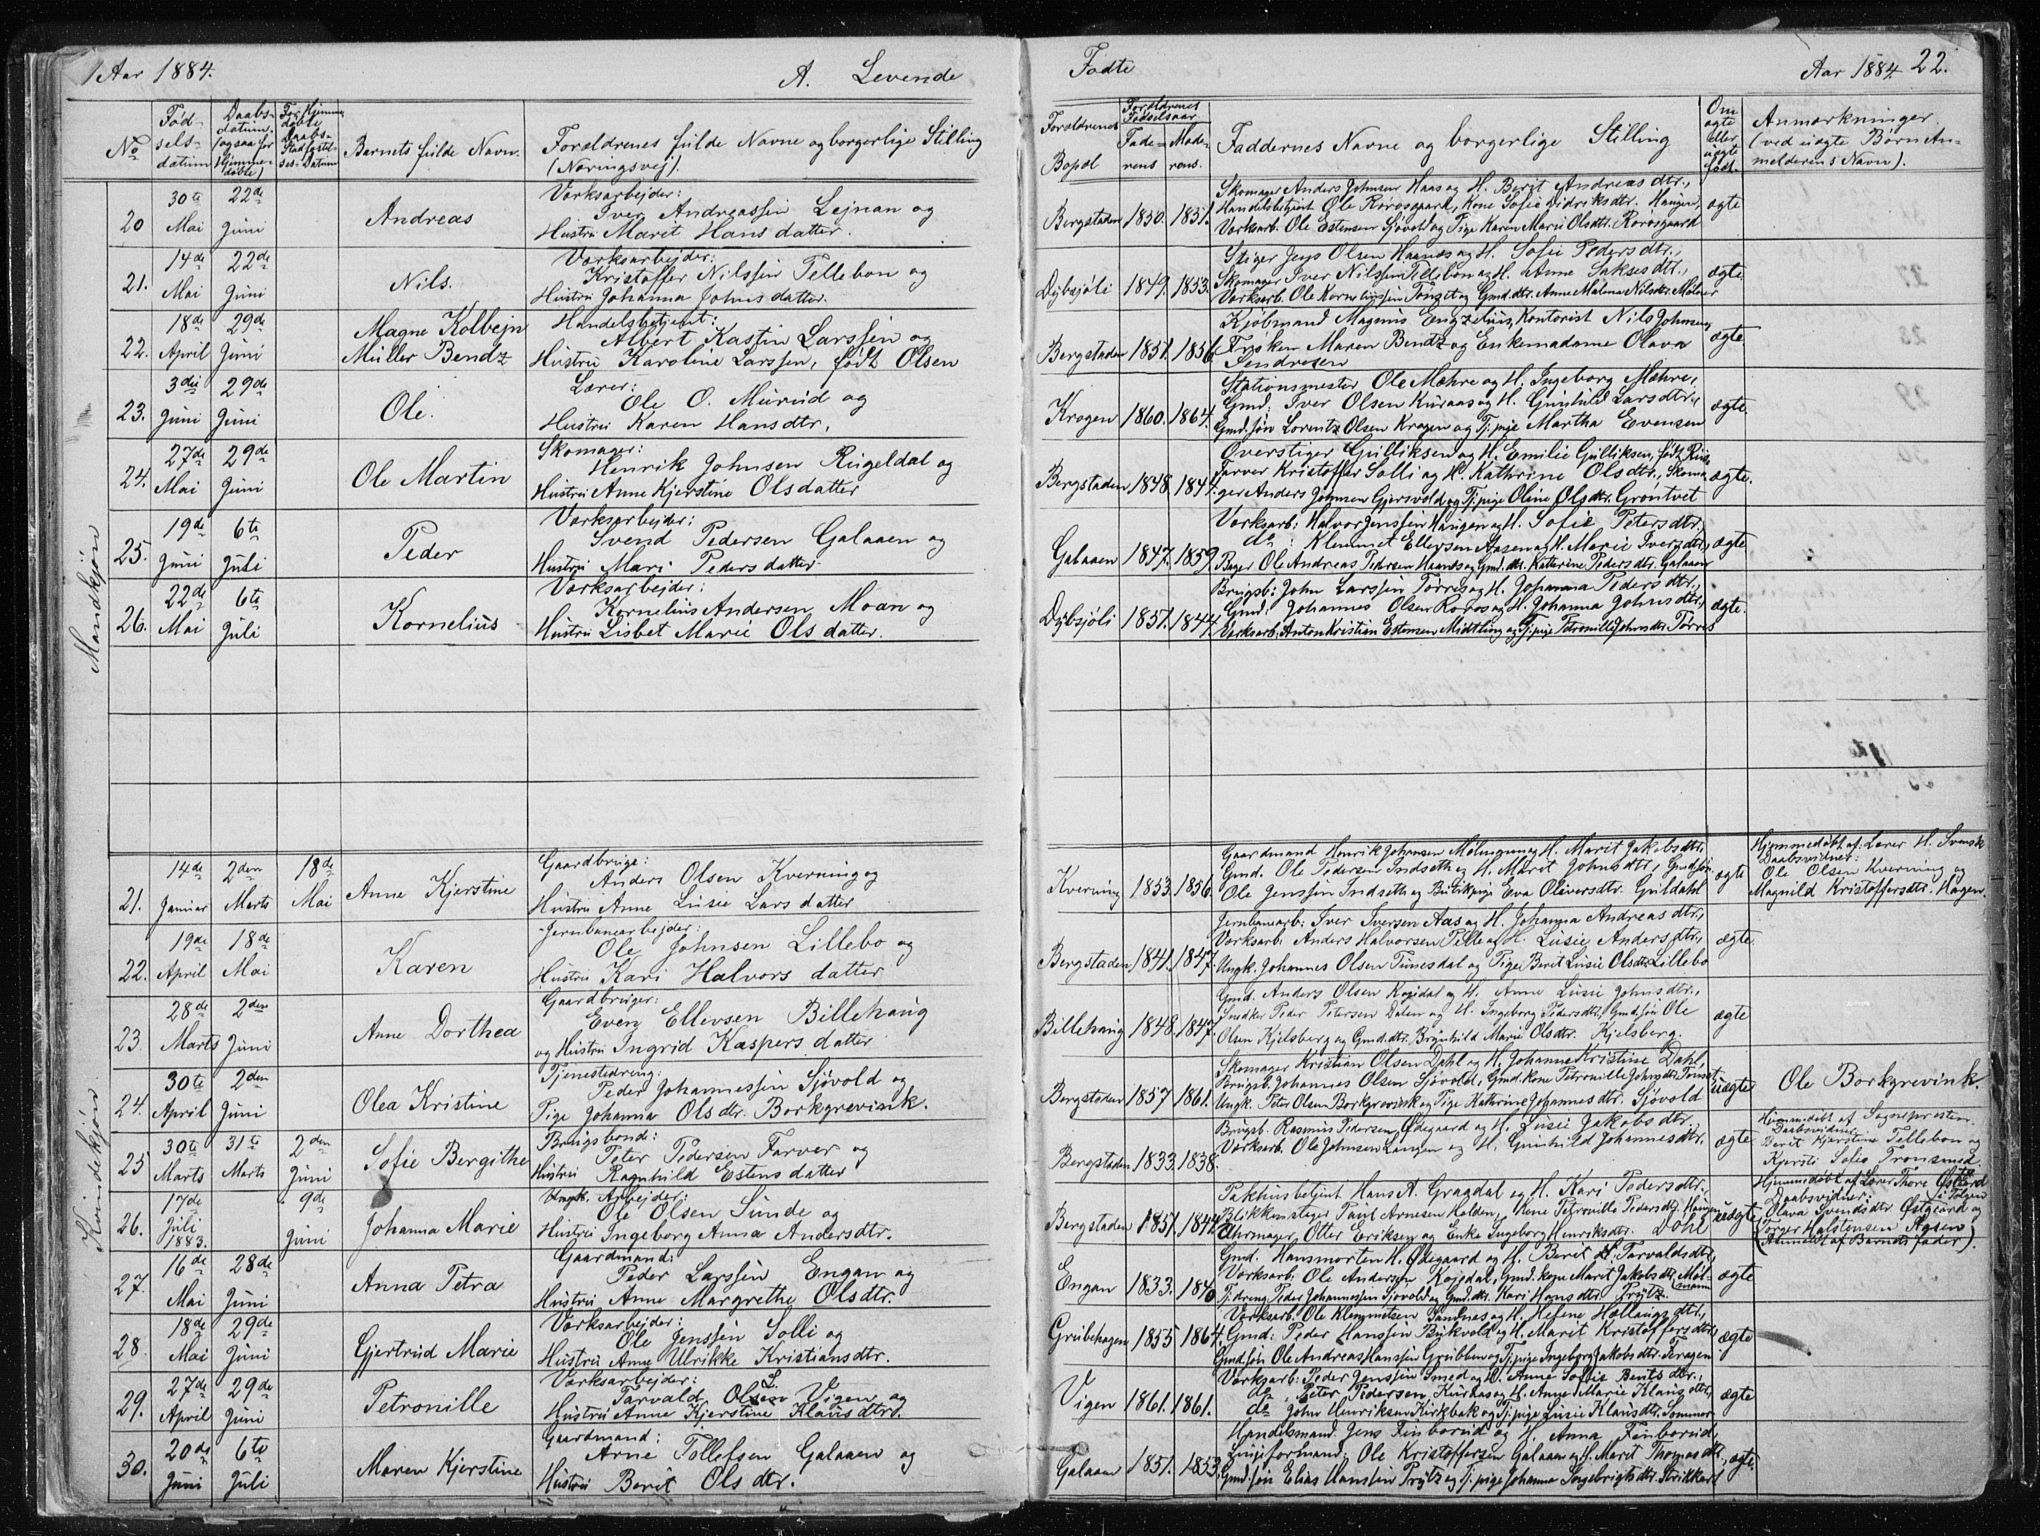 Aar 1884.
A. Levende
No.
Fød-
sels-
datum
Daabs-
datum
(ogsaa for
Hjemme-
døbte)
For Hjemme-
døbte
Daabs-
Stadfæstel-
ses-Datum
Barnets fulde Navn.
Forældrenes fulde Navne og borgerlige Stilling
(Næringsvej).
Mandkjøn
20 30te Mai 22de Juni Andreas
Værksarbejder:
Iver Andreassen Lejnan og
Hustru Maret Hansdatter.
21. 14de Mai 22de Juni Nils.
Værksarbejder:
Kristoffer Nilssen Tellebon og
Hustru Johanna Johnsdatter.
22. 18de April 29de Juni Magne Kolbejn
Müller Bendz
Handelsbetjent:
Albert Kastin Larssen og
Hustru Karoline Larssen, født Olsen
23. 3die Juni 29de Juni Ole.
Lærer:
Ole O. Murud og
Hustru Karen Hansdtr.
24. 27de Mai 29de Juni Ole Martin
Skomager:
Henrik Johnsen Rugeldal og
Hustru Anne Kjerstine Olsdatter
25. 19de Juni 6te Juli Peder
Værksarbejder:
Svend Pedersen Galaaen og
Hustru Mari Pedersdatter
26. 22de Mai 6te Juli Kornelius
Værksarbejder:
Kornelius Andersen Moan og
Hustru Lisbet Marie Olsdatter.
Kvindekjøn
21. 14de Januar 2den Marts 18de Mai Anne Kjerstine
Gaardbruger:
Anders Olsen Kverning og
Hustru Anne Lusie Larsdatter
22. 19de April 18de Mai Karen
Jernbanearbejder:
Ole Johnsen Lillebo og
Hustru Kari Halvorsdatter
23. 28de Marts 2den Juni Anne Dorthea
Gaardbruger:
Even Ellevsen Billehaug
og Hustru Ingrid Kaspersdatter
24. 30te April 2den Juni Olea Kristine
Tjenestedreng:
Peder Johannessen Sjøvold og
Pige Johanna Olsdtr. Borkgrevink.
25 30te Marts 31te Marts 2den Juni Sofie Bergithe
Brugsbonde:
Peter Pedersen Farver og
Hustru Ragnhild Estensdatter
26. 17de Juli 1883. 9de Juni Johanna Marie
Ungk. Arbejder:
Ole Olsen Sunde og
Hustru Ingeborg Anna Andersdtr.
27. 16de Mai 28de Juni Anna Petra
Gaardmand:
Peder Larssen Engan og
Hustru Anne Margrethe Olsdtr.
28. 18de Mai 29de Juni Gjertrud Marie
Værksarbejder:
Ole Jenssen Solli og
Hustru Anne Ulrikke Kristiansdtr.
29. 27de April 29de Juni Petronille
Værksarbejder:
Tarvald Olsen L. Vigen og
Hustru Anne Kjerstine Klausdtr.
30. 20de Juni 6te Juli Maren Kjerstine
Gaardmand:
Arne Tollefsen Galaaen og
Hustru Berit Olsdtr.
Fødte
Aar 1884. 22.
Forældrenes
Bopæl
Forældrenes
Fødselsaar
Fade-
rens
Mode-
rens.
Faddernes Navne og borgerlige Stilling
Om
ægte
eller
uægte
født.
Anmærkninger
(ved uægte Børn An-
melderens Navn).
Bergstaden 1850. 1851.
Skomager Anders Johnsen Haas og H. Berit Andreasdtr.,
Handelsbetjent Ole Rørosgaard, Kone Sofie Didriksdtr. Haugen,
Værksarb. Ole Estensen Sjøvold og Pige Karen Marie Olsdtr. Rørosgaard
ægte
Dybsjøli 1849. 1853.
Stiger Jens Olsen Haanæs og H. Sofie Pedersdtr.,
Skomager Iver Nilssen Tellebon og H. Anne Saksesdtr.,
Værksarb. Ole Korneliussen Tønset og Gmd.dtr. Anne Malena Nilsdtr. Molner
ægte
Bergstaden 1851. 1856.
Kjøbmand Magnus Engzelius, Kontorist Nils Johnsen,
Frøken Maren Bendz og Enkemadame Olava
Sendresen
ægte.
Krogen 1860. 1864.
Stationsmester Ole Mæhre og H. Ingeborg Mæhre,
Gmd. Iver Olsen Kuraas og H. Gunhild Larsdtr.,
Gmd.søn Lorentz Olsen Krogen og Tj.pige Martha Evensen
ægte.
Bergstaden 1848. 1844.
Overstiger Gulliksen og H. Emilie Gulliksen, født Rui,
Farver Kristoffer Solli og H. Kathrine Olsdtr., Skoma-
ger Anders Johnsen Gjersvold og Tj.pige Oline Olsdtr. Grøntvet
ægte.
Galaaen 1847. 1859.
Værksarb: Halvor Jenssen Haugen og H. Sofie Petersdtr.,
do : Klemmet Ellersen Aasen og H. Marie Iversdtr.,
Bager Ole Andreas Pedersen Haanæs og Gmd.dtr. Katherine Pedersdtr. Galaaen
ægte
Dybsjøli 1851. 1844.
Brugsb: John Larssen Tørres og H. Johanna Pedersdtr.,
Gmd. Johannes Olsen Røros og H. Johanna Johnsdtr.,
Værksarb. Anton Kristian Estensen Midtling og Tj.pige Petronille Johnsdtr. Tørres
ægte.
Kverning 1853. 1856.
Gaardmand Henrik Johnsen Molmann og H. Marit Jakobsdtr.,
Gmd. Ole Pedersen Indseth og H. Marit Johnsdtr., Gmd.søn
Ole Jenssen Indseth og Butikpige Eva Oliversdtr. Guldahl
ægte
Hjemmedøbt af: Lærer H. Svensk
Daabsvidner:
Ole Olsen Kverning og
Magnild Kristoffersdtr. Hagen.
Bergstaden 1841. 1847.
Jernbanearb: Iver Iversen Aas og H. Johanna Andreasdtr.,
Værksarb: Anders Halvorsen Pelle og H. Lusie Andersdtr.,
Ungk. Johannes Olsen Tunesdal og Pige Berit Lusie Olsdtr. Lillebo
ægte
Billehaug 1848. 1847.
Gmd. Anders Olsen Kojedal og H. Anne Lusie Johnsdtr.,
Snedker Peder Petersen Dalen og H. Ingeborg Pedersdtr., Gmd.søn Ole
Olsen Kjelsberg og Gmd.dtr. Brynhild Marie Olsdtr. Kjelsberg.
ægte
Bergstaden 1857 1861.
Skomager Kristian Olsen Dahl og H. Johanne Kristine Dahl,
Brugsb. Johannes Olsen Sjøvold, Gmd.kone Petronille Johnsdtr. Tamset
Ungk. Peter Olsen Borkgrevink og Pige Kathrine Johannesdtr. Sjøvold
uægte
Ole Borkgrevink.
Bergstaden 1833. 1838.
Brugsb. Rasmus Pedersen Ødegaard og H. Lusie Jakobsdtr.,
Værksarb. Ole Johnsen Langen og H. Gunhild Johannesdtr.
ægte
Hjemmedøbt af Sognepresten
Daabsvidner
Berit Kjerstine Tellebon og
Kjersti Sofie Tronsmed.
Bergstaden 1851. 1844.
Pakhusbetjent Hans A. Graadal og H. Kari Pedersdtr.,
Blikkenslager Paul Arnesen Holden, Kone Petronille Pedersdtr. Haugen
Uhrmager Otter Eriksen og Enke Ingeborg Henriksdtr. Dohl
uægte
Hjemmedøbt af Lærer Thore Østgård
i Tolgen
Daabsvidner:
Olava Svendsdtr Østgaard og
Torger Halstensen Aasen
(Anmeldt af Barnets fader).
Engan 1833. 1840
Gmd. Hansmorten H. Ødegaard og H. Berit H. Tarvaldsdtr.,
Værksarb. Ole Andersen Kojedal, Gmd.kone Marit Jakobsdtr. Mol-
mann
Tj.dreng Peder Johannessen Sjøvold og Gmd.dtr. Kari Hansdtr. Prytz
ægte
Grubehagen 1855 1864.
Værksarb. Ole Klemmetsen Sandnes og H. Helene Hollingsdtr.,
Gmd: Peder Hanssen Bukvold og H. Marit Kristoffersdtr.,
Gmd.søn Ole Andreas Hanssen Grubben og Tj.pige Ingeborg Jakobsdtr. Feragen
ægte
Vigen 1861. 1861.
Værksarb: Peder Jenssen Smed og H. Anne Sofie Bentsdtr.,
do Peter Pedersen Kuraas og H. Anne Marie Klausdtr.,
do John Henriksen Kirkbak og Tj.pige Lusie Klausdtr. Sommer
ægte
Galaaen 1851. 1853.
Handelsmand Jens Finborud og H. Anna Finborud,
Linjeformand: Ole Kristoffersen Galaaen og H. Marit Thomasdtr.,
Gmd.søn Elias Hanssen Prytz og Tj.pige Johanna Ingebrigtsdtr. Strikkert
ægte.